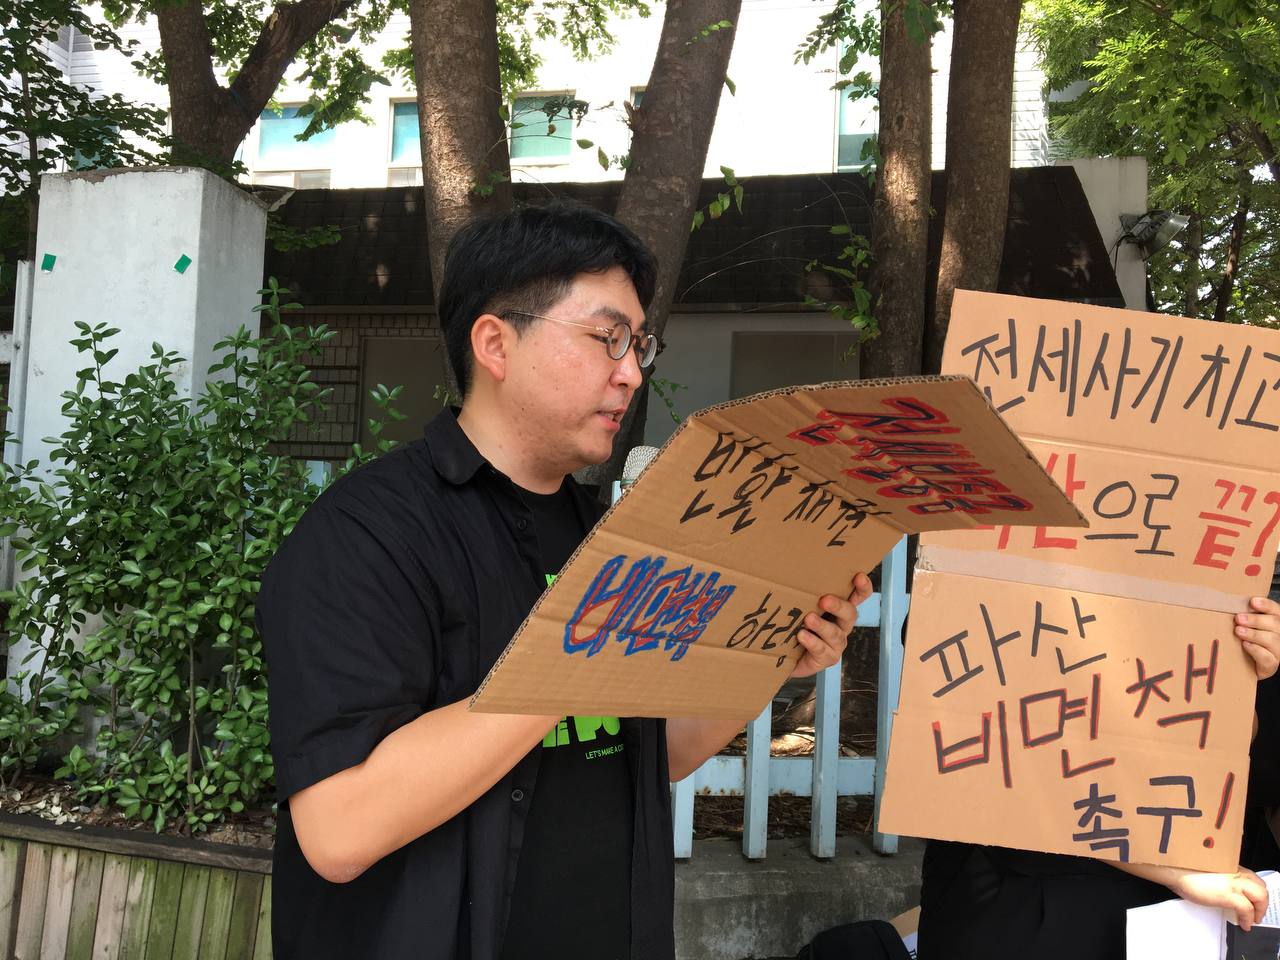 전세보증금
반환 채권
비면책 하라
전세사기 치고
파산으로 끝?
파산
비면책
촉구!
LET'S MAKE A